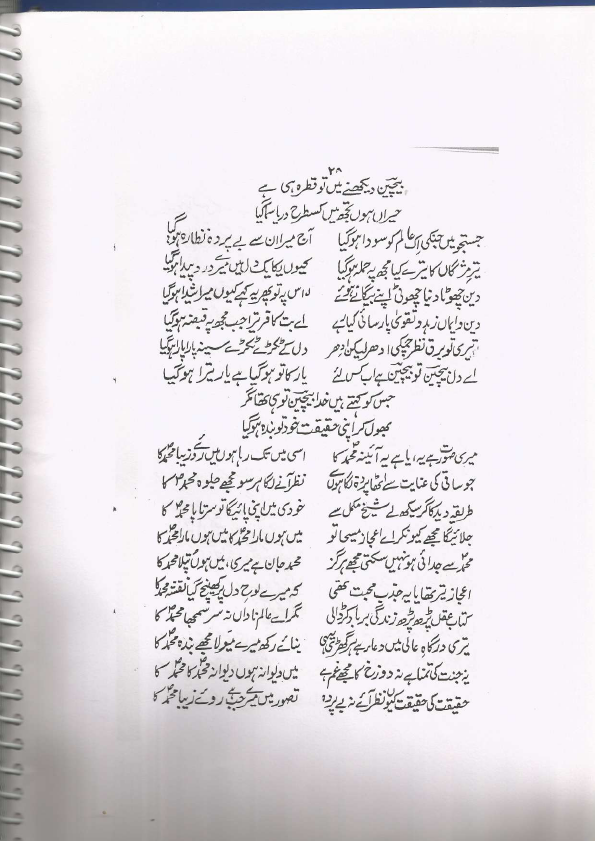 ۲۸
بیچین دیکھنے میں تو قطرہ ہی ہے
حیراں ہوں تجھ میں کسطرح دریا سما گیا
جستجو میں جنکی اک عالم کو سودا ہو گیا آج میرا ان سے بے پردہ نظارہ ہو گیا
تیر مژگاں کا ترے کیا مجھ پہ حملہ ہو گیا کیوں یکایک دل میں میرے درد پیدا ہو گیا
دین چھوٹا دنیا چھوٹی اپنے بیگانے ہوئے اس پر تو پھر یہ کہے کیوں میرا شیدا ہو گیا
دین و ایماں زہد و تقویٰ پارسائی کیا رہے اے بت کافر ترا جب مجھ پہ قبضہ ہو گیا
تیری تو برق نظر چمکی ادھر لیکن ادھر دل کے ٹکڑے ٹکڑے سینہ پارا پارا ہو گیا
اے دل بیچین تو بیچین ہے اب کس لئے یار کا تو ہو گیا ہے یار تیرا ہو گیا
جس کو کہتے ہیں خدا بیچین تو ہی تھا مگر
بھول کر اپنی حقیقت خود تو بندہ ہو گیا
میری صورت ہے یہ، یا ہے یہ آئینہ محمدؐ کا اسی میں تک رہا ہوں میں رُوئے زیبا محمدؐ کا
جو ساقی کی عنایت سے اٹھا پردہ نگاہوں سے نظر آنے لگا ہر سو مجھے جلوہ محمدؐ کا
طریقہ دید کا گر سیکھ لے شیخ مکمل سے خودی میں اپنی پائیگا تو سرتاپا محمدؐ کا
جلائیگا مجھے کیونکر اے اعجاز مسیحا تو میں ہوں مارا محمدؐ کا میں ہوں مارا محمدؐ کا
محمدؐ سے جدائی ہو نہیں سکتی مجھے ہرگز محمد جان ہے میری، میں ہوں پتلا محمدؐ کا
اعجاز تیر تھا یا یہ جذب محبت تھی کہ میرے لوح دل پر کھنچ گیا نقشہ محمدؐ کا
کتاب عقل پڑھ پڑھ زندگی برباد کر ڈالی مگر اے عالم ناداں نہ سر سمجھا محمدؐ کا
تیری درگاہِ عالی میں دعا ہے ہر گھڑی یہی بنائے رکھ میرے مَولا مجھے بندہ محمدؐ کا
نہ جنت کی تمنا ہے نہ دوزخ کا مجھے غم ہے میں دیوانہ ہوں دیوانہ محمدؐ کا محمدؐ کا
حقیقت کی حقیقت کیوں نظر آئے نہ بے پردہ تصور میں میرے جب ہے روئے زیبا محمدؐ کا